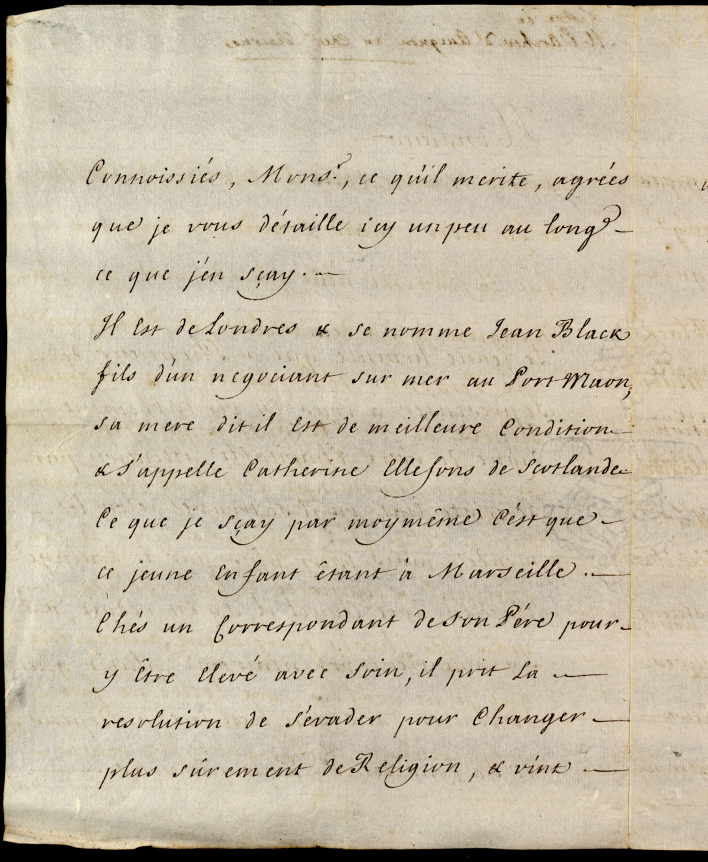 Connoissiés, Mons.r, ce qu'il merite, agrées
que je vous détaille icy un peu au long
ce que j'en sçay.
Il Est de Londres & se nomme Jean Black
fils d'un negociant sur mer au Port Maon,
sa mere dit il Est de meilleure Condition
& s'appelle Catherine Ellesons de Scotlande
Ce que je sçay par moymême C'ést que
ce jeune Enfant êtant à Marseille
Chés un Correspondant de son Pére pour
y Être Elevé avec Soin, il prit La
resolution de s'évader pour Changer
plus sûrement de Religion, & vint